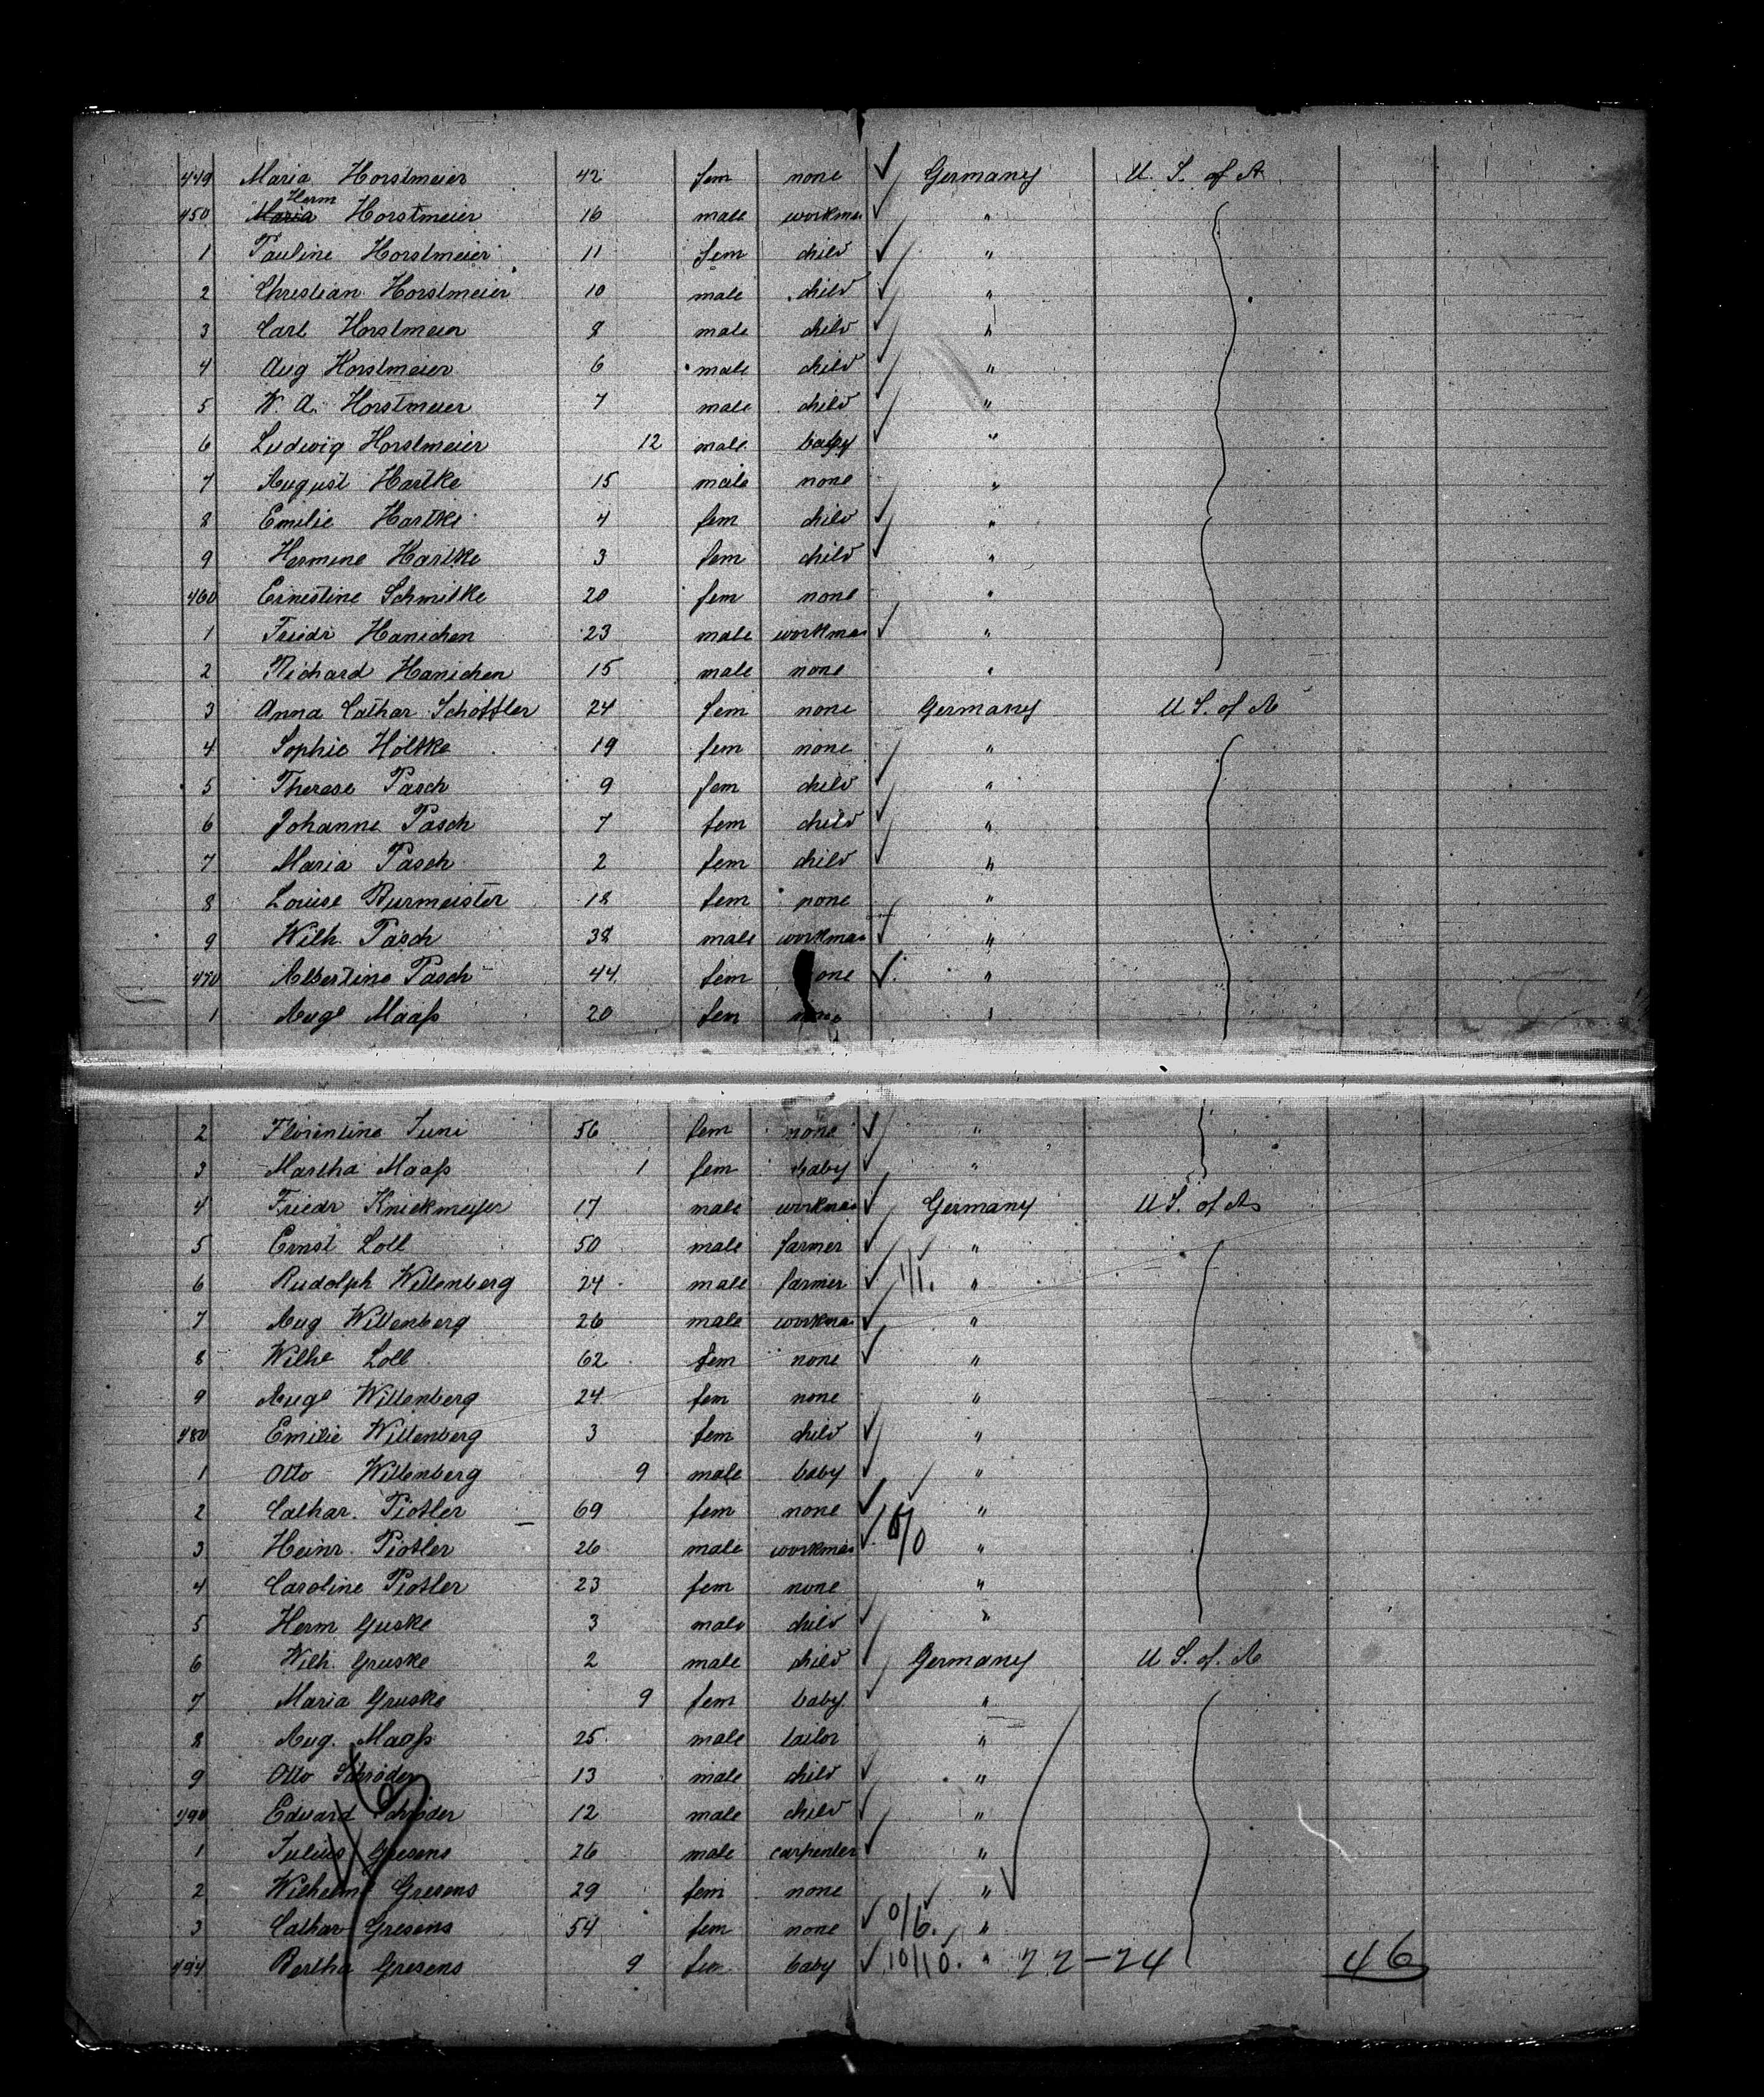 449 Maria Horstmeier 42 fem none ✓ Germany U. S. of A
Herm
450 Maria Horstmeier 16 male workman ✓ "
1 Pauline Horstmeier 11 fem child ✓ "
2 Christian Horstmeier 10 male child ✓ "
3 Carl Horstmeier 8 male child ✓ "
4 Aug Horstmeier 6 male child ✓ "
5 W. A. Horstmeier 7 male child ✓ "
6 Ludwig Horstmeier 12 male baby ✓ "
7 August Hartke 15 male none "
8 Emilie Hartke 4 fem child ✓ "
9 Hermine Hartke 3 fem child ✓ "
460 Ernestine Schmilke 20 fem none "
1 Friedr Hanichen 23 male workman ✓ "
2 Richard Hanichen 15 male none "
3 Anna Cathar Schöttler 24 fem none Germany U S. of A
4 Sophie Höltke 19 fem none "
5 Therese Pasch 9 fem child ✓ "
6 Johanne Pasch 7 fem child ✓ "
7 Maria Pasch 2 fem child ✓ "
8 Louise Burmeister 18 fem none "
9 Wilh. Pasch 38 male workman ✓ "
470 Albertine Pasch 44 fem one ✓ "
1 Auge Maaß 20 fem none "
2 Florentine Juni 56 fem none ✓ "
3 Martha Maaß 1 fem baby ✓ "
4 Friedr Knickmeyer 17 male workman ✓ Germany U S. of A
5 Ernst Loll 50 male farmer ✓ "
6 Rudolph Wittenberg 24 male farmer ✓ 1/1. "
7 Aug Wittenberg 26 male workman ✓ "
8 Wilhe Loll 62 fem none ✓ "
9 Auge Wittenberg 24 fem none "
480 Emilie Wittenberg 3 fem child ✓ "
1 Otto Wittenberg 9 male baby ✓ "
2 Cathar. Piotler 69 fem none ✓ "
3 Heinr. Piotler 26 male workman ✓ "
4 Caroline Piotler 23 fem none "
5 Herm Guske 3 male child ✓ "
6 Wilh. Gruske 2 male child ✓ Germany U S. of. A
7 Maria Gruske 9 fem baby. ✓ "
8 Aug. Maaß 25 male tailor "
9 Otto Schröder 13 male child ✓ "
490 Eduard Schröder 12 male child ✓ "
1 Julius Gresens 26 male carpenter ✓ "
2 Wilhelm Gresens 29 fem none "
3 Cathar Gresens 54 fem none ✓ 0/6. "
494 Bertha Gresens 9 fem baby ✓ 10/10. " 22-24 46